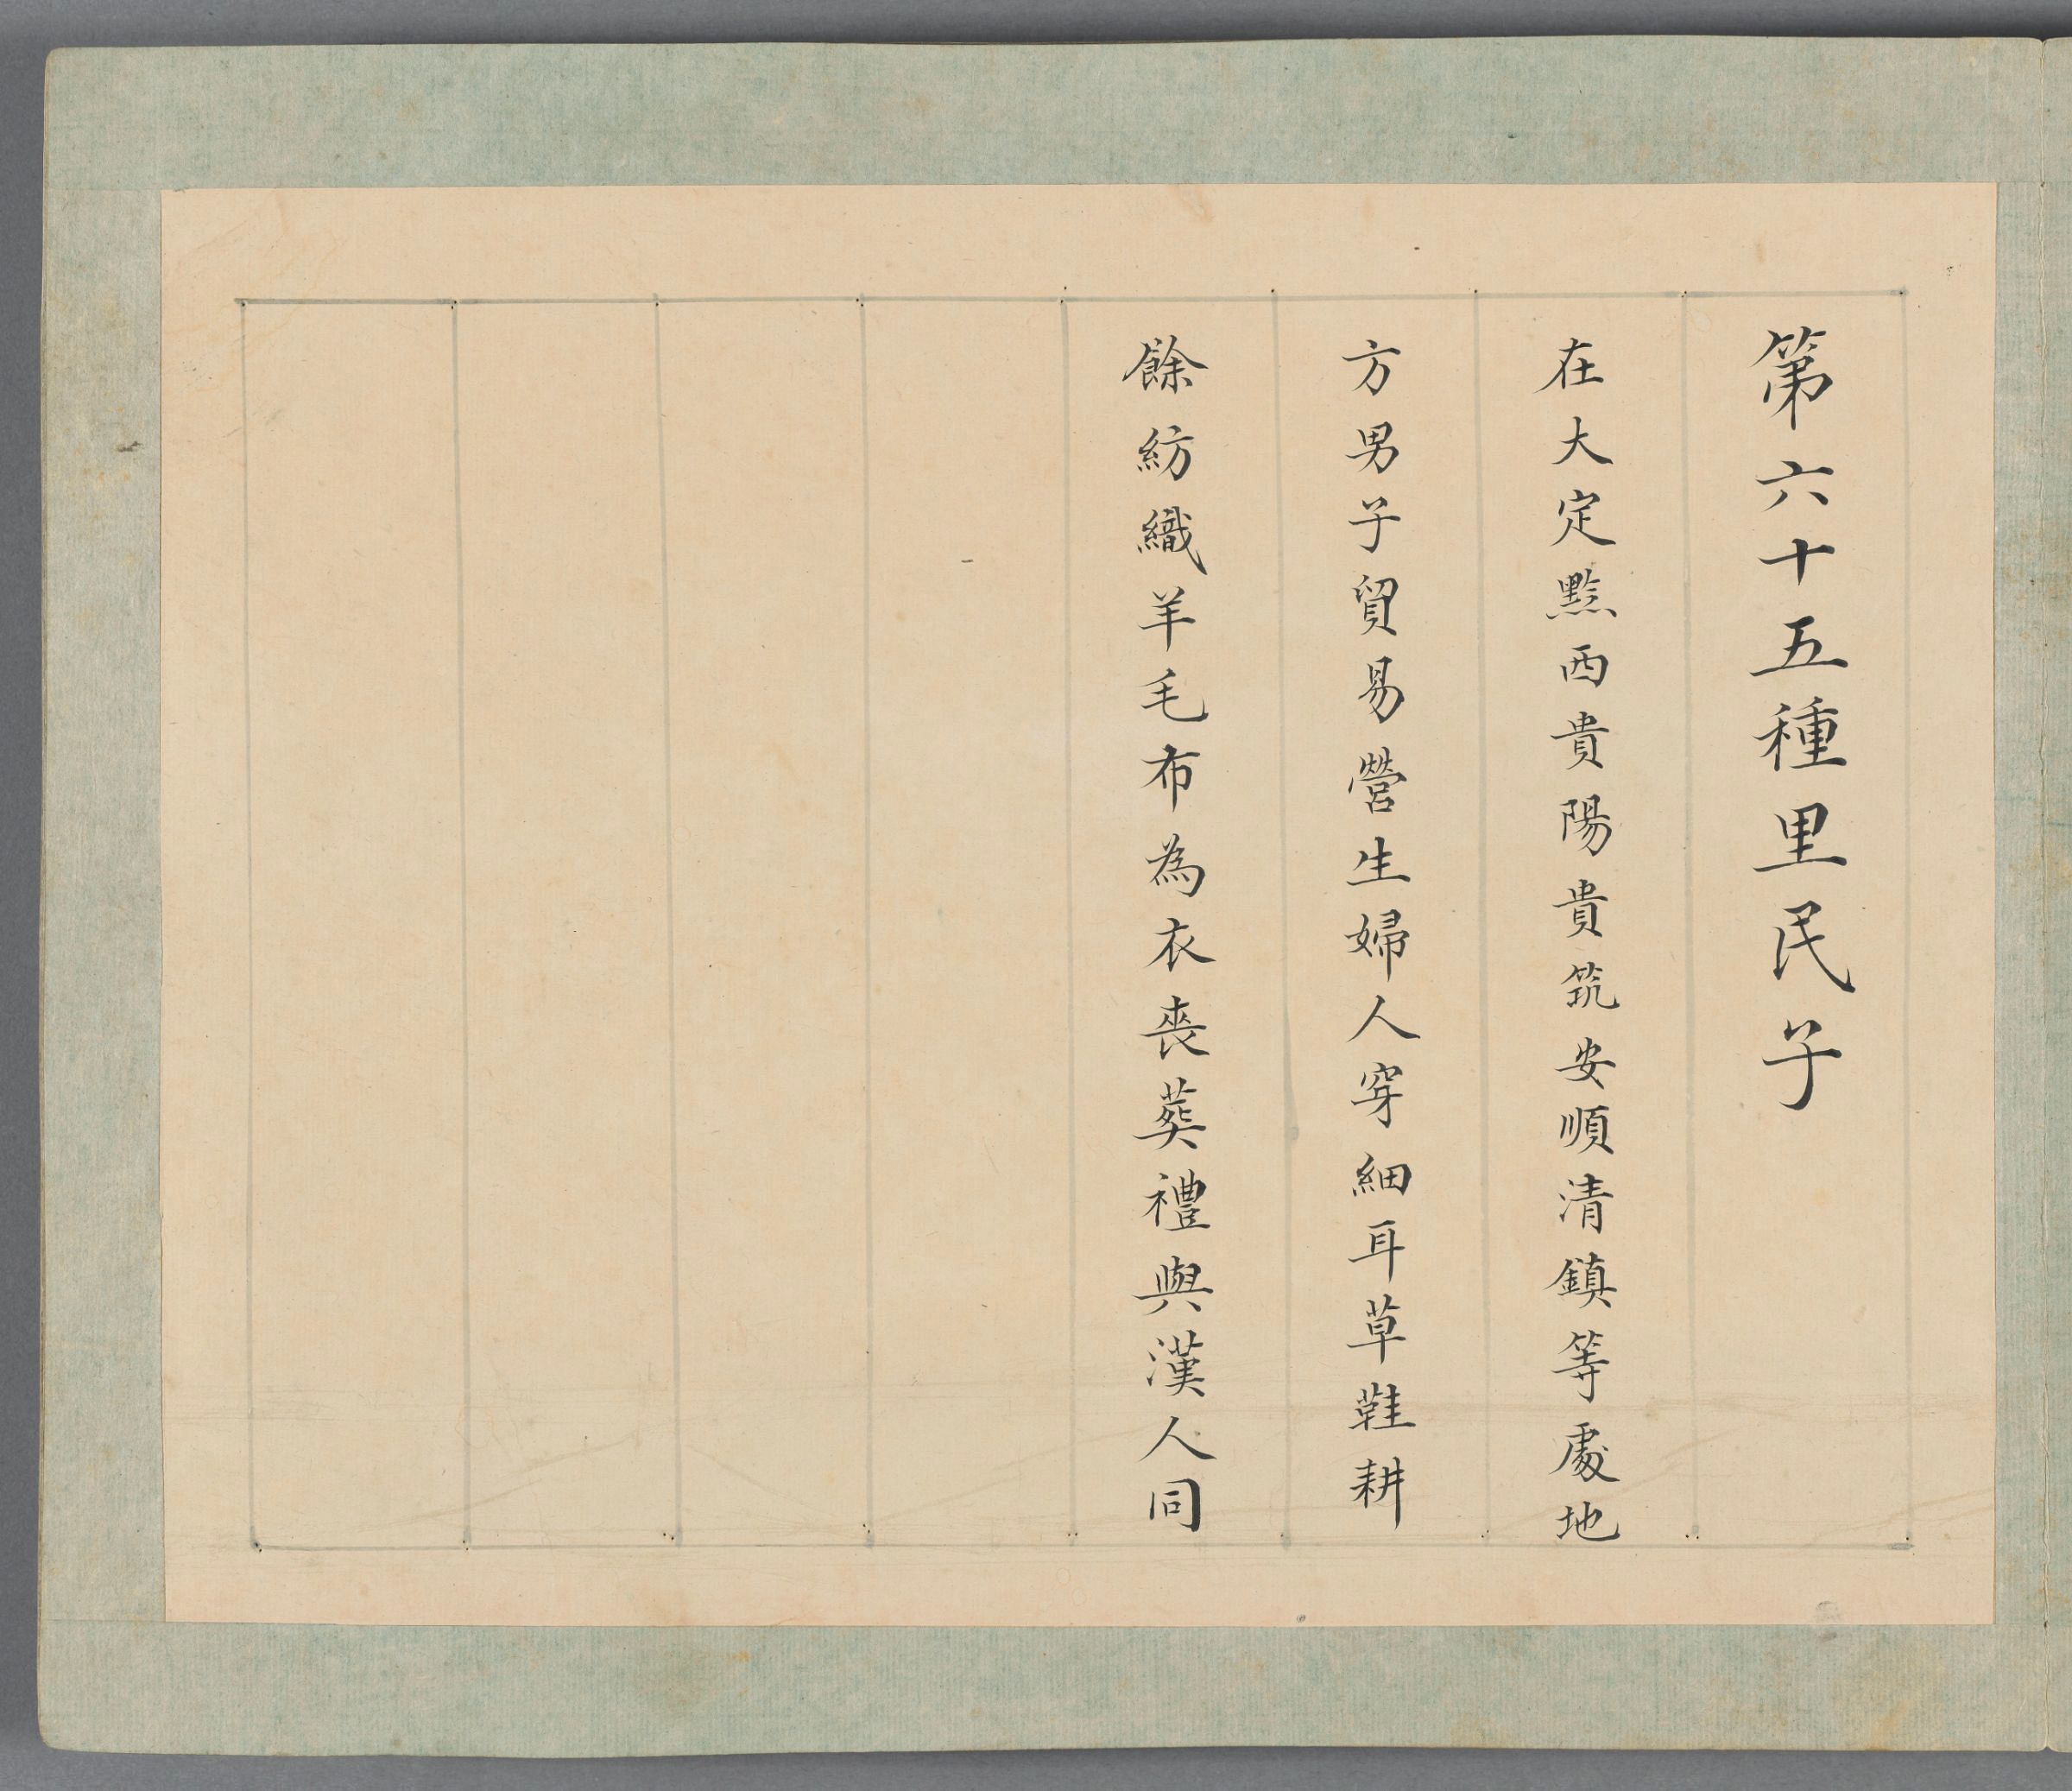 第六十五種里民子
在大定黔西貴陽貴筑安順清鎮等處地
方男子貿易營生婦人穿細耳草鞋耕
餘紡織羊毛布為衣喪葬禮與漢人同